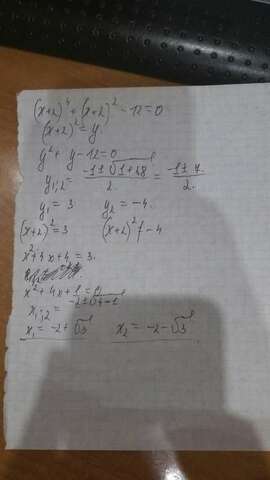 (x+2)⁴ + (x+2)² - 12 = 0
(x+2)² = y
y² + y - 12 = 0
y₁;₂ = (-1 ± √(1+48))/2. = (-1 ± 7)/2.
y₁ = 3 y₂ = -4.
(x+2)² = 3 (x+2)² ≠ -4
x² + 4x + 4 = 3.
x² + 4x + 1 = 0
x₁;₂ = -2 ± √(4-1)
x₁ = -2 + √3 x₂ = -2 - √3